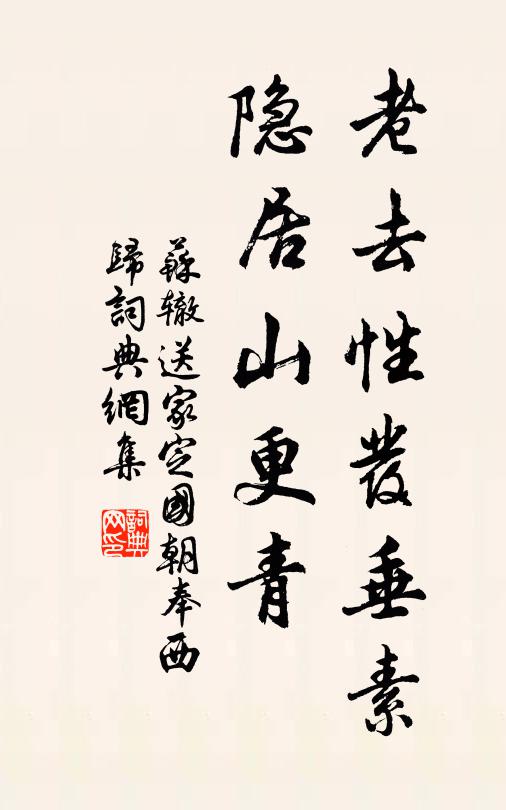 老去性發垂素
隐居山更青
蘇辙送家定國朝奉西
歸詞典網集
詞典网印